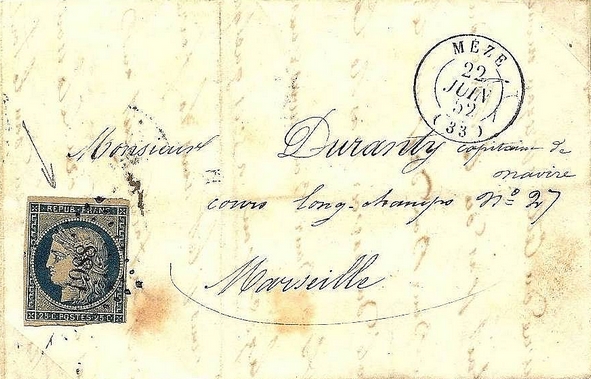 MÈZE
22
JUIN
52
(33)
Monsieur Duranty capitaine de
navire
cours long-champs Nº 27
Marseille
REPUB. FRANC.
25 C. POSTES 25 C.